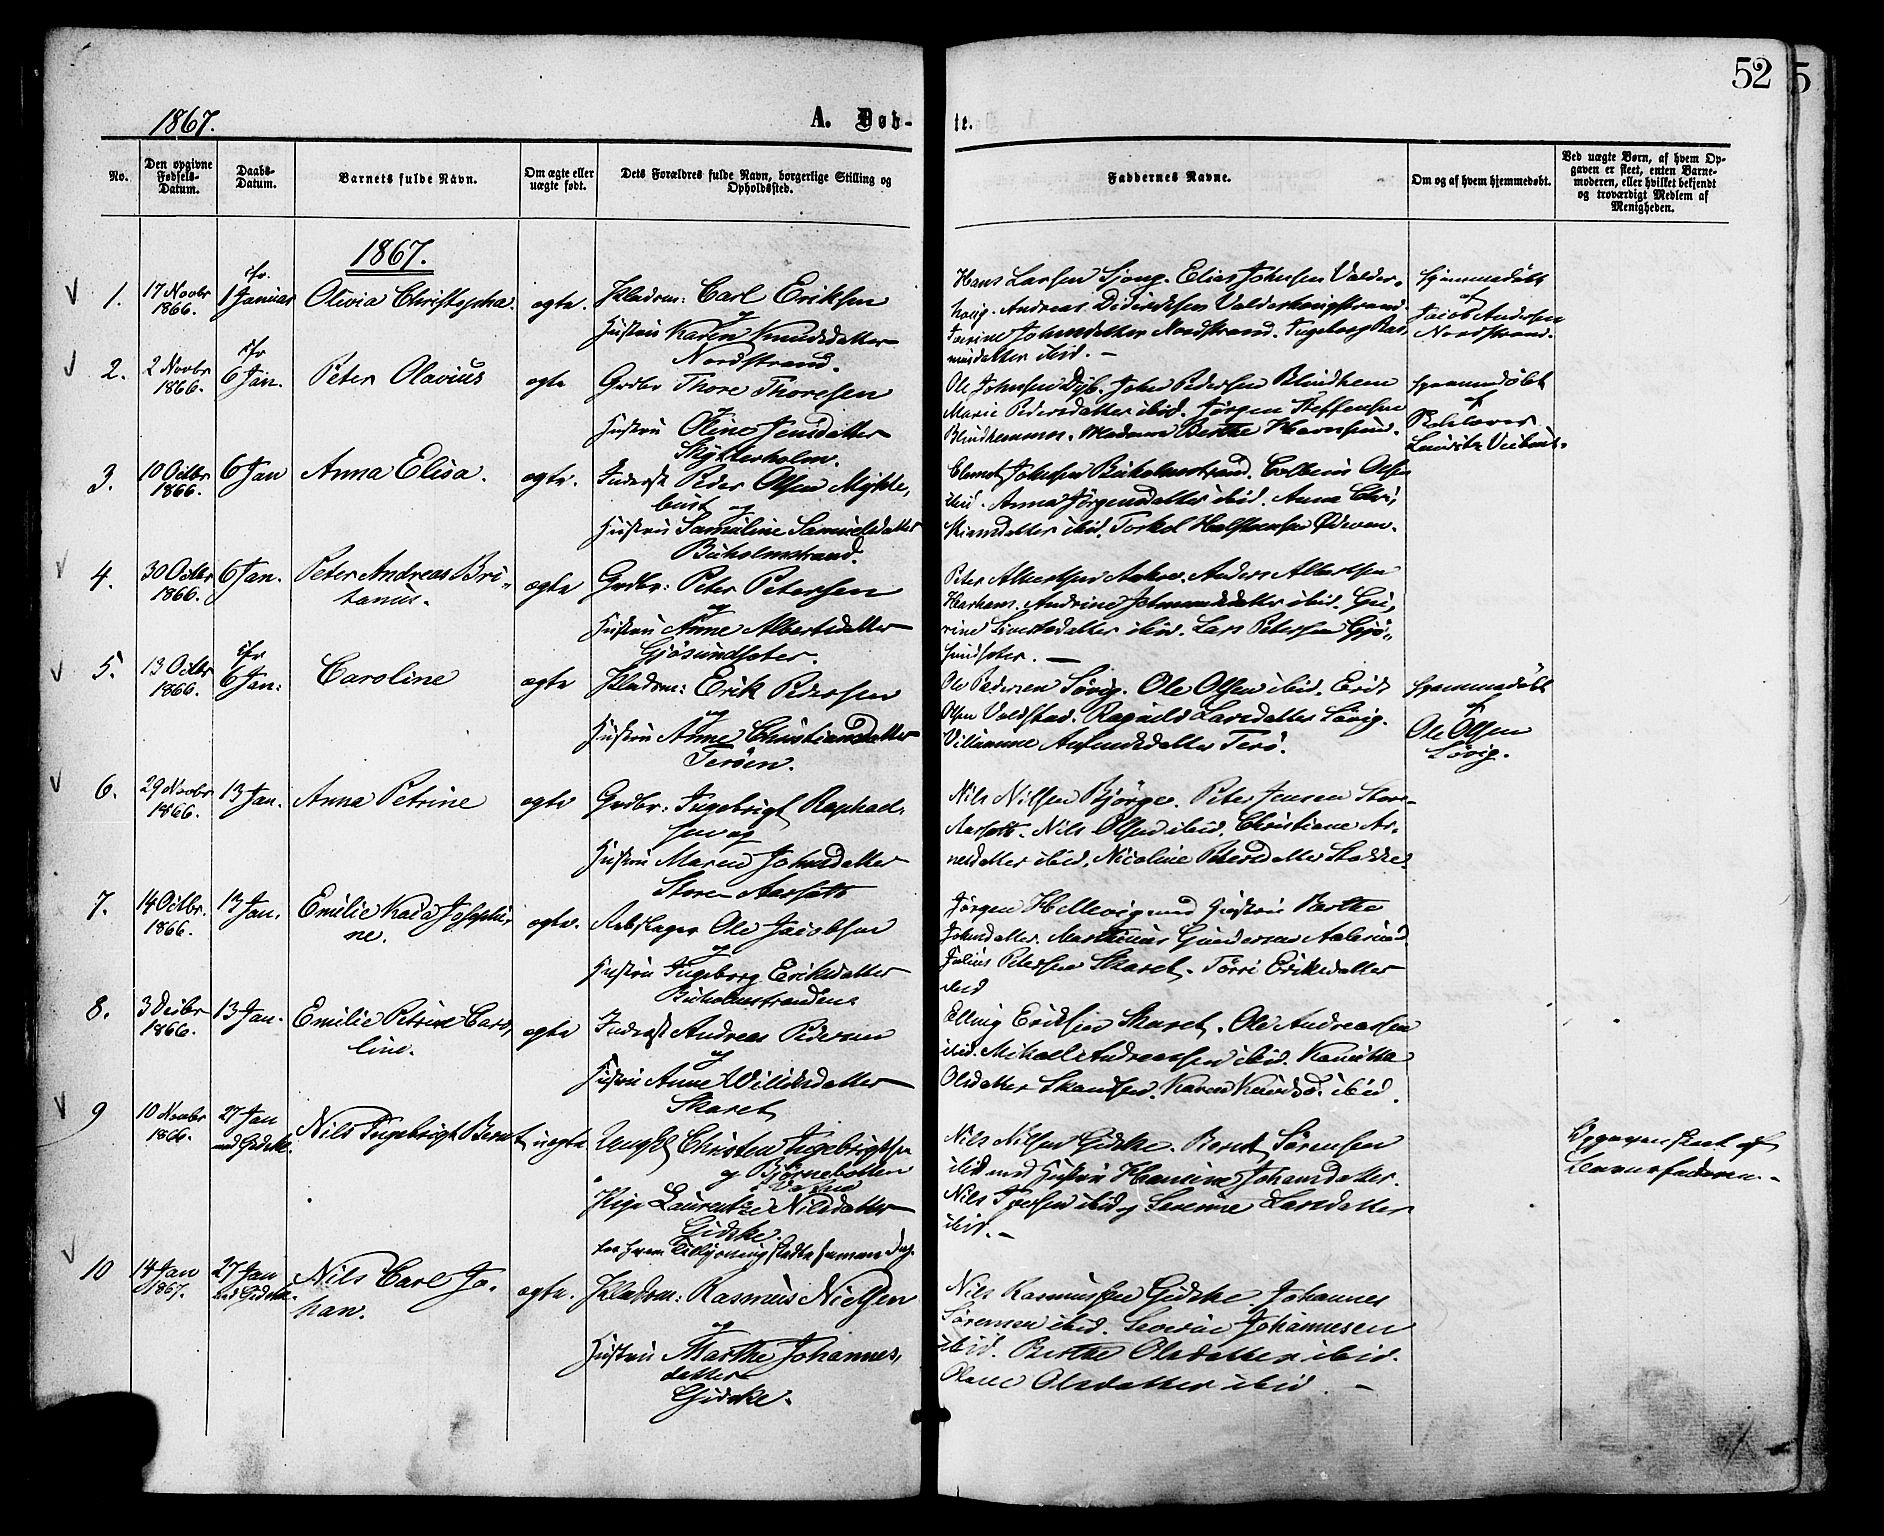 52
5
1867.
A. Døb-
te.
No.
Den opgivne
Fødsels-
Datum.
Daabs-
Datum.
Barnets fulde Navn.
Om ægte eller
uægte født.
Dets Forældres fulde Navn, borgerlige Stilling og
Opholdssted.
Faddernes Navne.
Om og af hvem hjemmedøbt.
Ved uægte Børn, af hvem Op-
gaven er skeet, enten Barne-
moderen, eller hvilket bekjendt
og troværdigt Medlem af
Menigheden.
1867.
1.
17 Novbr
1866.
1 Januar
Olivia Christopha.
ægte.
Pladsm: Carl Eriksen
og
Hustru Karen Knudsdatter
Nordstrand.
Hans Larsen Sjong. Elias Johnsen Valder-
houg. Andreas Didriksen Valderhougstrand
Johnsdatter Nordstrand. Ingeborg Ras-
musdatter ibid. -
Hjemmedøbt
af
Jacob Andersen
Nordstrand.
2.
2 Novbr
1866.
6 Jan.
Peter Olavius
ægte
Grdbr Thore Thoresen
og
Hustru Oline Jensdatter
Ole Johnsen Dyb. John Pedersen Blindhem
Marie Pedersdatter ibid. Jørgen Steffensen
Blindhemmen. Madame Berthe Havnsund.
Hjemmedøbt
af
3.
10 Octbr
1866.
6 Jan
Anna Elisa.
ægte.
Inderst Peder Olsen Mykle,
bust og
Hustru Samuline Samuelsdatter
Buholmstrand.
Johnsen Buholmstrand. Olsen
ibid. Anna Jørgensdatter ibid. Anna Chri,
stiansdatter ibid. Torkel Halstensen
4.
30 Octbr
1866.
6 Jan.
Peter Andreas Bri-
tanus.
ægte
Grdbr: Peter Petersen
og
Hustru Anne Albertsdatter
Gjøsundsæter.
Peter Albertsen Anders Albertsen
Harham. Andrine ibid. Gu,
rine Sivertsdatter ibid. Lars Petersen Gjø,
sundsæter. -
5.
13 Octbr
1866.
6 Jan:
Caroline
ægte
Pladsm: Erik Pedersen
og
Hustru Anne Christiansdatter
Terøen.
Ole Pedersen Søvig. Ole Olsen ibid. Erik
Olsen Valdstad. Larsdatter Søvig.
Terø.
Hjemmedøbt
af
Ole Olsen
Søvig.
6.
29 Novbr
1866.
13 Jan.
Anna Petrine
ægte
Grdbr: Ingebrigt Raphael,
sen og
Hustru Maren Johnsdatter
Store Aarsæth
Nils Nilsen Bjørge. Peter Jensen Store-
Aarsæth. Nils Olsen ibid. Christiane Ar-
nesdatter ibid. Nicoline Petersdatter
7.
14 Octbr.
1866.
13 Jan.
Emilie Kaia Josephi-
ne.
ægte.
Rebslager Ole Jacobsen
og
Hustru Ingeborg Eriksdatter
Buholmstranden
Jørgen Hellevig med Hustru Berthe
Johnsdatter. Martinus Gundersen Aalesund
Julius Petersen Skaret. Eriksdatter
ibid
8.
3 Decbr
1866.
13 Jan.
Emilie Petrine Caro,
line.
ægte
Inderst Andreas Pedersen
og
Hustru Anne
Skaret
Elling Eriksen Skaret. Ole Andreassen
ibid. Mikael Andreassen ibid.
Olsdatter Skandsen. Karen ibid.
9
10 Novbr
1866.
27 Jan
ved Gidske.
Nils Ingebrigt Bernt
uægte
Ungkl Christen Ingebrigtsen
og Bjørnebotten
Pige Laurentze Nilsdatter
Gidske.
Nils Nilsen Gidske. Bernt Sørensen
ibid med Hustru Hansine Johansdatter.
Nils Iversen ibid og Serenne Larsdatter
ibid. -
Opgaven skeet af
Barnefaderen. -
10
14 Jan
1867.
27 Jan
ved Gidske.
Nils Carl Jo-
han.
ægte.
Pladsm: Rasmus Nielsen
og
Hustru Marthe Johannes,
datter
Gidske.
Nils Rasmussen Gidske Johannes
Sørensen ibid. Severin Johannesen
ibid. Berthe Olsdatter ibid.
Olsdatter ibid. -